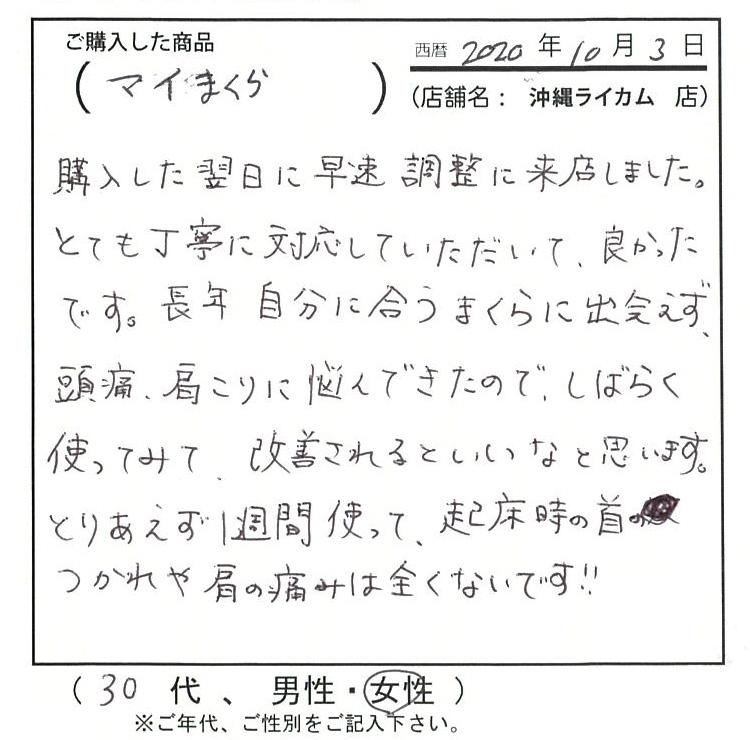 ご購入した商品
西暦 2020 年 10 月 3 日
( マイまくら )
(店舗名： 沖縄ライカム 店)
購入した翌日に早速調整に来店しました。
とても丁寧に対応していただいて、良かった
です。長年自分に合うまくらに出会えず、
頭痛、肩こりに悩んできたので、しばらく
使ってみて、改善されるといいなと思います。
とりあえず1週間使って、起床時の首の
つかれや肩の痛みは全くないです!!
( 30 代 、 男性・女性 )
※ご年代、ご性別をご記入下さい。